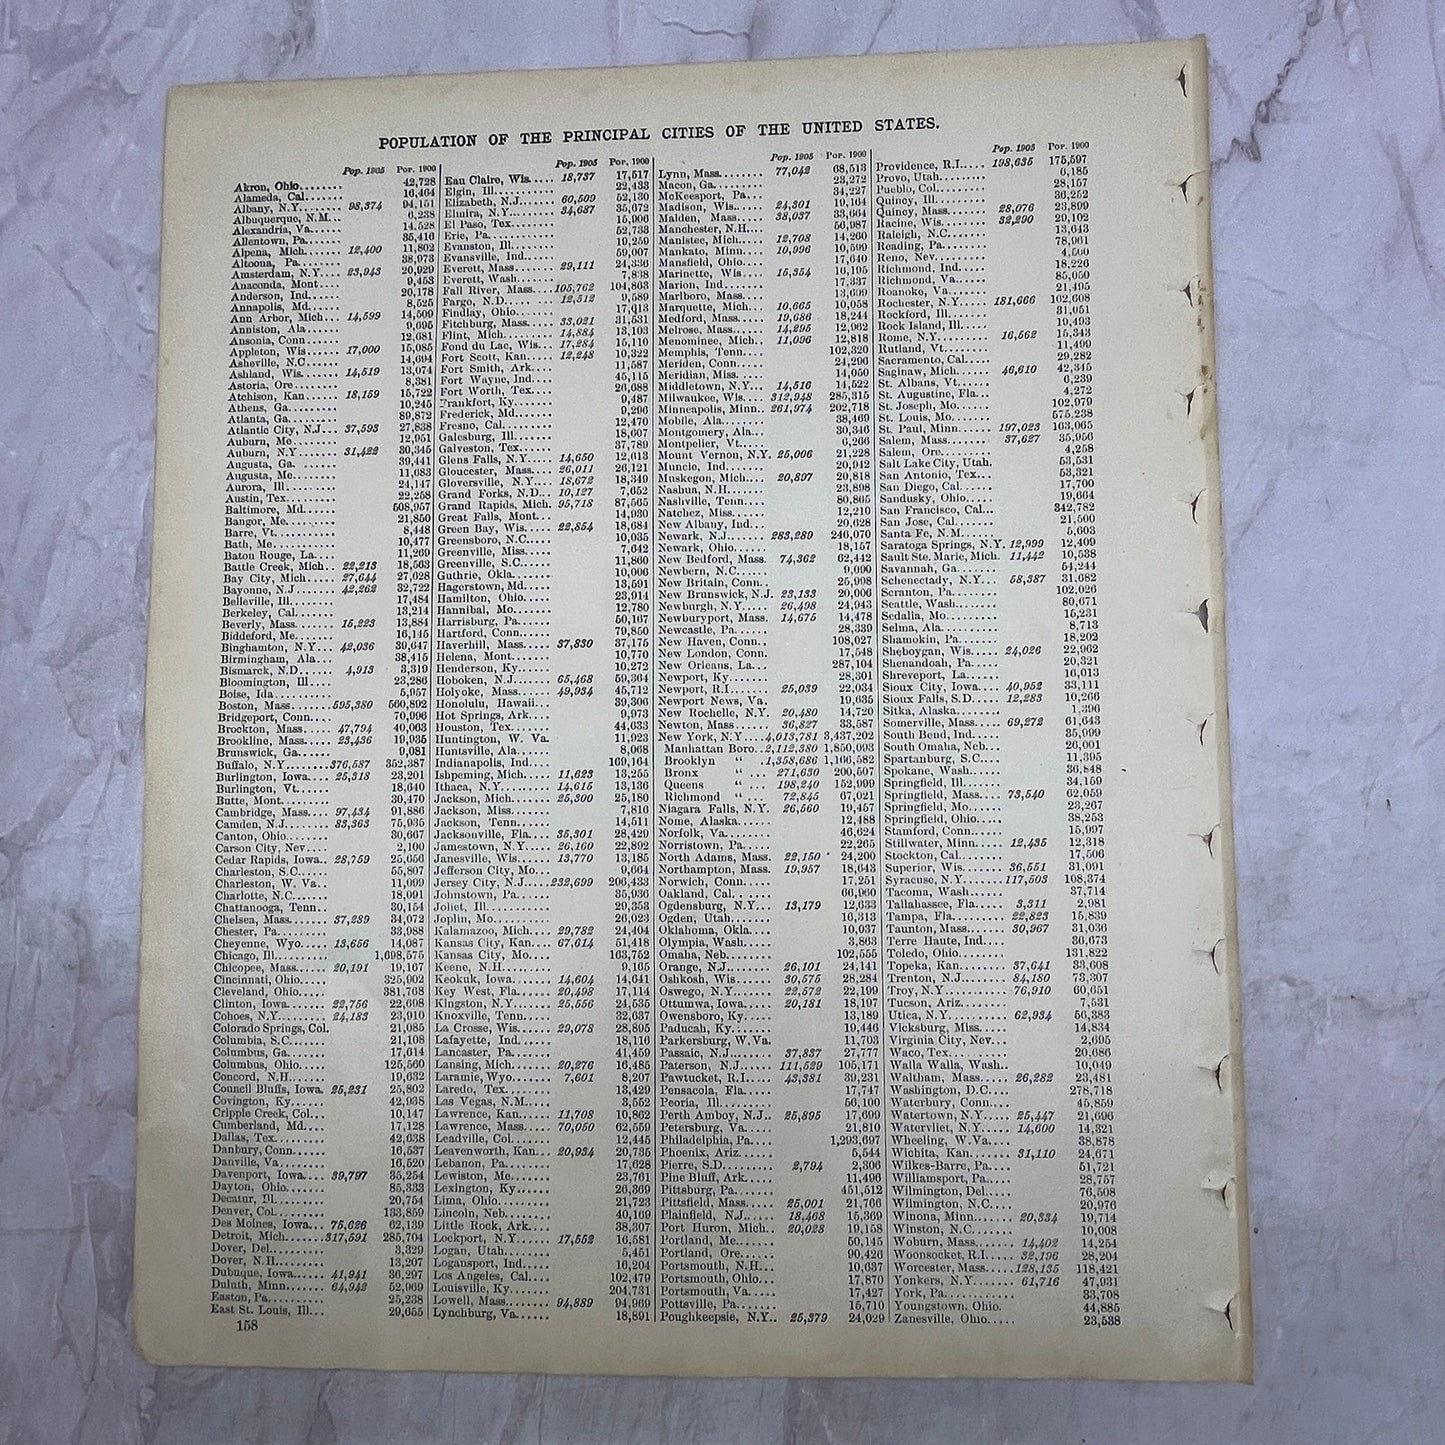 POPULATION OF THE PRINCIPAL CITIES OF THE UNITED STATES.
Pop. 1905 Pop. 1900
Akron, Ohio........ 42,728
Alameda, Cal....... 16,464
Albany, N.Y........ 98,374 94,151
Albuquerque, N.M... 6,238
Alexandria, Va..... 14,528
Allentown, Pa..... 35,416
Alpena, Mich...... 12,400 11,802
Altoona, Pa........ 38,973
Amsterdam, N.Y.... 23,943 20,929
Anaconda, Mont.... 9,453
Anderson, Ind...... 20,178
Annapolis, Md..... 8,525
Ann Arbor, Mich.. 14,599 14,500
Anniston, Ala...... 9,695
Ansonia, Conn..... 12,681
Appleton, Wis...... 17,000 15,085
Asheville, N.C..... 14,694
Ashland, Wis...... 14,519 13,074
Astoria, Ore........ 8,381
Atchison, Kan..... 18,159 15,722
Athens, Ga......... 10,245
Atlanta, Ga........ 89,872
Atlantic City, N.J... 37,593 27,838
Auburn, Me........ 12,951
Auburn, N.Y....... 31,422 30,345
Augusta, Ga. ...... 39,441
Augusta, Me....... 11,683
Aurora, Ill......... 24,147
Austin, Tex........ 22,258
Baltimore, Md..... 508,957
Bangor, Me........ 21,850
Barre, Vt.......... 8,448
Bath, Me.......... 10,477
Baton Rouge, La.... 11,269
Battle Creek, Mich.. 22,213 18,563
Bay City, Mich..... 27,644 27,628
Bayonne, N.J...... 42,262 32,722
Belleville, Ill....... 17,484
Berkeley, Cal....... 13,214
Beverly, Mass...... 15,223 13,884
Biddeford, Me...... 16,145
Binghamton, N.Y... 42,036 39,647
Birmingham, Ala... 38,415
Bismarck, N.D..... 4,913 3,319
Bloomington, Ill.... 23,286
Boise, Ida.......... 5,957
Boston, Mass...... 595,380 560,892
Bridgeport, Conn.... 70,996
Brockton, Mass..... 47,794 40,063
Brookline, Mass.... 23,436 19,935
Brunswick, Ga..... 9,081
Buffalo, N.Y....... 376,587 352,387
Burlington, Iowa.... 25,318 23,201
Burlington, Vt..... 18,640
Butte, Mont........ 30,470
Cambridge, Mass... 97,434 91,886
Camden, N.J....... 83,363 75,935
Canton, Ohio....... 30,667
Carson City, Nev.... 2,100
Cedar Rapids, Iowa.. 28,759 25,656
Charleston, S.C..... 55,807
Charleston, W. Va.. 11,099
Charlotte, N.C...... 18,091
Chattanooga, Tenn.. 30,154
Chelsea, Mass....... 37,289 34,072
Chester, Pa......... 33,988
Cheyenne, Wyo..... 13,656 14,087
Chicago, Ill......... 1,698,575
Chicopee, Mass..... 20,191 19,167
Cincinnati, Ohio..... 325,902
Cleveland, Ohio..... 381,768
Clinton, Iowa....... 22,756 22,698
Cohoes, N.Y........ 24,183 23,910
Colorado Springs, Col. 21,085
Columbia, S.C...... 21,108
Columbus, Ga...... 17,614
Columbus, Ohio.... 125,560
Concord, N.H....... 19,632
Council Bluffs, Iowa 25,231 25,802
Covington, Ky...... 42,938
Cripple Creek, Col... 10,147
Cumberland, Md.... 17,128
Dallas, Tex......... 42,638
Danbury, Conn..... 16,537
Danville, Va........ 16,520
Davenport, Iowa.... 39,797 35,254
Dayton, Ohio....... 85,333
Decatur, Ill......... 20,754
Denver, Col......... 133,859
Des Moines, Iowa... 75,626 62,139
Detroit, Mich....... 317,591 285,704
Dover, Del......... 3,329
Dover, N.H........ 13,207
Dubuque, Iowa...... 41,941 36,297
Duluth, Minn....... 64,942 52,969
Easton, Pa.......... 25,238
East St. Louis, Ill... 29,655
Pop. 1905 Pop. 1900
Eau Claire, Wis..... 18,737 17,517
Elgin, Ill........... 22,433
Elizabeth, N.J....... 60,509 52,130
Elmira, N.Y........ 34,687 35,672
El Paso, Tex........ 15,906
Erie, Pa............ 52,733
Evanston, Ill....... 19,259
Evansville, Ind..... 59,007
Everett, Mass....... 29,111 24,336
Everett, Wash...... 7,838
Fall River, Mass.... 105,762 104,863
Fargo, N.D......... 12,512 9,589
Findlay, Ohio...... 17,613
Fitchburg, Mass.... 33,021 31,531
Flint, Mich......... 14,884 13,103
Fond du Lac, Wis... 17,284 15,110
Fort Scott, Kan..... 12,248 10,322
Fort Smith, Ark.... 11,587
Fort Wayne, Ind.... 45,115
Fort Worth, Tex.... 26,688
Frankfort, Ky...... 9,487
Frederick, Md...... 9,296
Fresno, Cal......... 12,470
Galesburg, Ill....... 18,607
Galveston, Tex..... 37,789
Glens Falls, N.Y.... 14,650 12,613
Gloucester, Mass.... 26,011 26,121
Gloversville, N.Y... 18,672 18,349
Grand Forks, N.D... 10,127 7,652
Grand Rapids, Mich. 95,718 87,565
Great Falls, Mont... 14,930
Green Bay, Wis..... 22,854 18,684
Greensboro, N.C.... 10,035
Greenville, Miss.... 7,642
Greenville, S.C...... 11,860
Guthrie, Okla....... 10,006
Hagerstown, Md.... 13,591
Hamilton, Ohio..... 23,914
Hannibal, Mo...... 12,780
Harrisburg, Pa...... 50,167
Hartford, Conn..... 79,850
Haverhill, Mass.... 37,830 37,175
Helena, Mont....... 10,770
Henderson, Ky..... 10,272
Hoboken, N.J...... 65,468 59,364
Holyoke, Mass...... 49,934 45,712
Honolulu, Hawaii... 39,306
Hot Springs, Ark.... 9,973
Houston, Tex....... 44,633
Huntington, W. Va. 11,923
Huntsville, Ala..... 8,068
Indianapolis, Ind... 169,164
Ishpeming, Mich.... 11,623 13,255
Ithaca, N.Y........ 14,615 13,136
Jackson, Mich...... 25,300 25,180
Jackson, Miss...... 7,816
Jackson, Tenn..... 14,511
Jacksonville, Fla.... 35,301 28,429
Jamestown, N.Y.... 26,160 22,892
Janesville, Wis..... 13,770 13,185
Jefferson City, Mo... 9,664
Jersey City, N.J.... 232,699 206,433
Johnstown, Pa...... 35,936
Joliet, Ill........... 29,353
Joplin, Mo......... 26,023
Kalamazoo, Mich... 29,782 24,404
Kansas City, Kan... 67,614 51,418
Kansas City, Mo.... 163,752
Keene, N.H......... 9,165
Keokuk, Iowa...... 14,604 14,641
Key West, Fla...... 20,498 17,114
Kingston, N.Y..... 25,556 24,535
Knoxville, Tenn.... 32,637
La Crosse, Wis..... 29,078 28,895
Lafayette, Ind...... 18,116
Lancaster, Pa...... 41,459
Lansing, Mich...... 20,276 16,485
Laramie, Wyo...... 7,601 8,207
Laredo, Tex........ 13,429
Las Vegas, N.M.... 3,552
Lawrence, Kan..... 11,708 10,862
Lawrence, Mass.... 70,050 62,559
Leadville, Col...... 12,445
Leavenworth, Kan... 20,934 20,735
Lebanon, Pa........ 17,628
Lewiston, Me...... 23,761
Lexington, Ky..... 26,369
Lima, Ohio........ 21,723
Lincoln, Neb....... 40,169
Little Rock, Ark.... 38,307
Lockport, N.Y..... 17,552 16,581
Logan, Utah....... 5,451
Logansport, Ind.... 16,204
Los Angeles, Cal.... 102,479
Louisville, Ky...... 204,731
Lowell, Mass....... 94,889 94,969
Lynchburg, Va..... 18,891
Pop. 1905 Pop. 1900
Lynn, Mass........ 77,042 68,513
Macon, Ga......... 23,272
McKeesport, Pa.... 34,227
Madison, Wis...... 24,301 19,164
Malden, Mass..... 38,037 33,664
Manchester, N.H.... 56,987
Manistee, Mich..... 12,708 14,260
Mankato, Minn.... 10,996 10,599
Mansfield, Ohio.... 17,640
Marinette, Wis..... 15,354 16,195
Marion, Ind....... 17,337
Marlboro, Mass.... 13,609
Marquette, Mich... 10,665 10,058
Medford, Mass..... 19,686 18,244
Melrose, Mass..... 14,295 12,962
Menominee, Mich.. 11,096 12,818
Memphis, Tenn.... 102,320
Meriden, Conn..... 24,296
Meridian, Miss..... 14,050
Middletown, N.Y... 14,516 14,522
Milwaukee, Wis.... 312,948 285,315
Minneapolis, Minn.. 261,974 202,718
Mobile, Ala........ 38,469
Montgomery, Ala... 30,346
Montpelier, Vt..... 6,266
Mount Vernon, N.Y. 25,006 21,228
Muncie, Ind....... 20,942
Muskegon, Mich... 20,897 20,818
Nashua, N.H....... 23,898
Nashville, Tenn.... 80,865
Natchez, Miss...... 12,210
New Albany, Ind... 20,628
Newark, N.J....... 283,289 246,070
Newark, Ohio...... 18,157
New Bedford, Mass. 74,362 62,442
Newbern, N.C..... 9,090
New Britain, Conn.. 25,998
New Brunswick, N.J. 23,133 20,006
Newburgh, N.Y.... 26,498 24,943
Newburyport, Mass. 14,675 14,478
Newcastle, Pa...... 28,339
New Haven, Conn.. 108,027
New London, Conn. 17,548
New Orleans, La... 287,104
Newport, Ky...... 28,301
Newport, R.I...... 25,039 22,034
Newport News, Va. 19,635
New Rochelle, N.Y. 20,480 14,720
Newton, Mass..... 36,827 33,587
New York, N.Y.... 4,013,781 3,437,202
Manhattan Boro.. 2,112,380 1,850,093
Brooklyn " . 1,358,686 1,166,582
Bronx " ... 271,630 200,507
Queens " ... 198,240 152,999
Richmond " ... 72,845 67,021
Niagara Falls, N.Y. 26,560 19,457
Nome, Alaska..... 12,488
Norfolk, Va....... 46,624
Norristown, Pa.... 22,265
North Adams, Mass. 22,150 24,200
Northampton, Mass. 19,957 18,643
Norwich, Conn.... 17,251
Oakland, Cal...... 66,960
Ogdensburg, N.Y... 13,179 12,633
Ogden, Utah...... 16,313
Oklahoma, Okla.... 10,037
Olympia, Wash.... 3,863
Omaha, Neb....... 102,555
Orange, N.J....... 26,101 24,141
Oshkosh, Wis...... 30,575 28,284
Oswego, N.Y...... 22,572 22,199
Ottumwa, Iowa..... 20,181 18,197
Owensboro, Ky.... 13,189
Paducah, Ky...... 19,446
Parkersburg, W.Va. 11,703
Passaic, N.J....... 37,837 27,777
Paterson, N.J...... 111,529 105,171
Pawtucket, R.I.... 43,381 39,231
Pensacola, Fla..... 17,747
Peoria, Ill........ 56,100
Perth Amboy, N.J.. 25,895 17,699
Petersburg, Va..... 21,810
Philadelphia, Pa.... 1,293,697
Phoenix, Ariz..... 5,544
Pierre, S.D........ 2,794 2,306
Pine Bluff, Ark.... 11,496
Pittsburg, Pa...... 451,512
Pittsfield, Mass.... 25,001 21,766
Plainfield, N.J..... 18,468 15,369
Port Huron, Mich.. 20,028 19,158
Portland, Me...... 50,145
Portland, Ore...... 90,426
Portsmouth, N.H... 10,637
Portsmouth, Ohio... 17,870
Portsmouth, Va.... 17,427
Pottsville, Pa...... 15,710
Poughkeepsie, N.Y.. 25,379 24,029
Pop. 1905 Pop. 1900
Providence, R.I..... 198,635 175,597
Provo, Utah....... 6,185
Pueblo, Col........ 28,157
Quincy, Ill........ 36,252
Quincy, Mass...... 28,076 23,899
Racine, Wis....... 32,290 29,102
Raleigh, N.C...... 13,643
Reading, Pa....... 78,961
Reno, Nev........ 4,500
Richmond, Ind.... 18,226
Richmond, Va..... 85,050
Roanoke, Va...... 21,495
Rochester, N.Y.... 181,666 162,608
Rockford, Ill...... 31,051
Rock Island, Ill.... 19,493
Rome, N.Y....... 16,562 15,343
Rutland, Vt....... 11,499
Sacramento, Cal.... 29,282
Saginaw, Mich..... 46,610 42,345
St. Albans, Vt..... 6,239
St. Augustine, Fla... 4,272
St. Joseph, Mo..... 102,979
St. Louis, Mo...... 575,238
St. Paul, Minn..... 197,023 163,065
Salem, Mass....... 37,627 35,956
Salem, Ore........ 4,258
Salt Lake City, Utah. 53,531
San Antonio, Tex... 53,321
San Diego, Cal..... 17,700
Sandusky, Ohio.... 19,664
San Francisco, Cal... 342,782
San Jose, Cal...... 21,500
Santa Fe, N.M..... 5,603
Saratoga Springs, N.Y. 12,999 12,409
Sault Ste. Marie, Mich. 11,442 10,538
Savannah, Ga..... 54,244
Schenectady, N.Y... 58,387 31,682
Scranton, Pa...... 102,026
Seattle, Wash..... 80,671
Sedalia, Mo....... 15,231
Selma, Ala........ 8,713
Shamokin, Pa..... 18,202
Sheboygan, Wis.... 24,026 22,962
Shenandoah, Pa.... 20,321
Shreveport, La.... 16,013
Sioux City, Iowa... 40,952 33,111
Sioux Falls, S.D... 12,283 10,266
Sitka, Alaska...... 1,396
Somerville, Mass... 69,272 61,643
South Bend, Ind... 35,999
South Omaha, Neb.. 26,001
Spartanburg, S.C.... 11,395
Spokane, Wash.... 36,848
Springfield, Ill..... 34,159
Springfield, Mass... 73,540 62,059
Springfield, Mo.... 23,267
Springfield, Ohio... 38,253
Stamford, Conn.... 15,997
Stillwater, Minn.... 12,435 12,318
Stockton, Cal..... 17,506
Superior, Wis..... 36,551 31,091
Syracuse, N.Y..... 117,503 108,374
Tacoma, Wash.... 37,714
Tallahassee, Fla.... 3,311 2,981
Tampa, Fla....... 22,823 15,839
Taunton, Mass.... 30,967 31,036
Terre Haute, Ind... 36,673
Toledo, Ohio..... 131,822
Topeka, Kan..... 37,641 33,608
Trenton, N.J..... 84,180 73,307
Troy, N.Y....... 76,910 60,651
Tucson, Ariz..... 7,531
Utica, N.Y...... 62,934 56,383
Vicksburg, Miss... 14,834
Virginia City, Nev... 2,695
Waco, Tex...... 20,686
Walla Walla, Wash.. 10,049
Waltham, Mass... 26,282 23,481
Washington, D.C... 278,718
Waterbury, Conn... 45,859
Watertown, N.Y... 25,447 21,696
Watervliet, N.Y... 14,600 14,321
Wheeling, W.Va... 38,878
Wichita, Kan.... 31,110 24,671
Wilkes-Barre, Pa... 51,721
Williamsport, Pa... 28,757
Wilmington, Del... 76,508
Wilmington, N.C... 20,976
Winona, Minn.... 20,334 19,714
Winston, N.C..... 10,008
Woburn, Mass.... 14,402 14,254
Woonsocket, R.I... 32,196 28,204
Worcester, Mass... 128,135 118,421
Yonkers, N.Y.... 61,716 47,931
York, Pa........ 33,708
Youngstown, Ohio. 44,885
Zanesville, Ohio.... 23,538
158